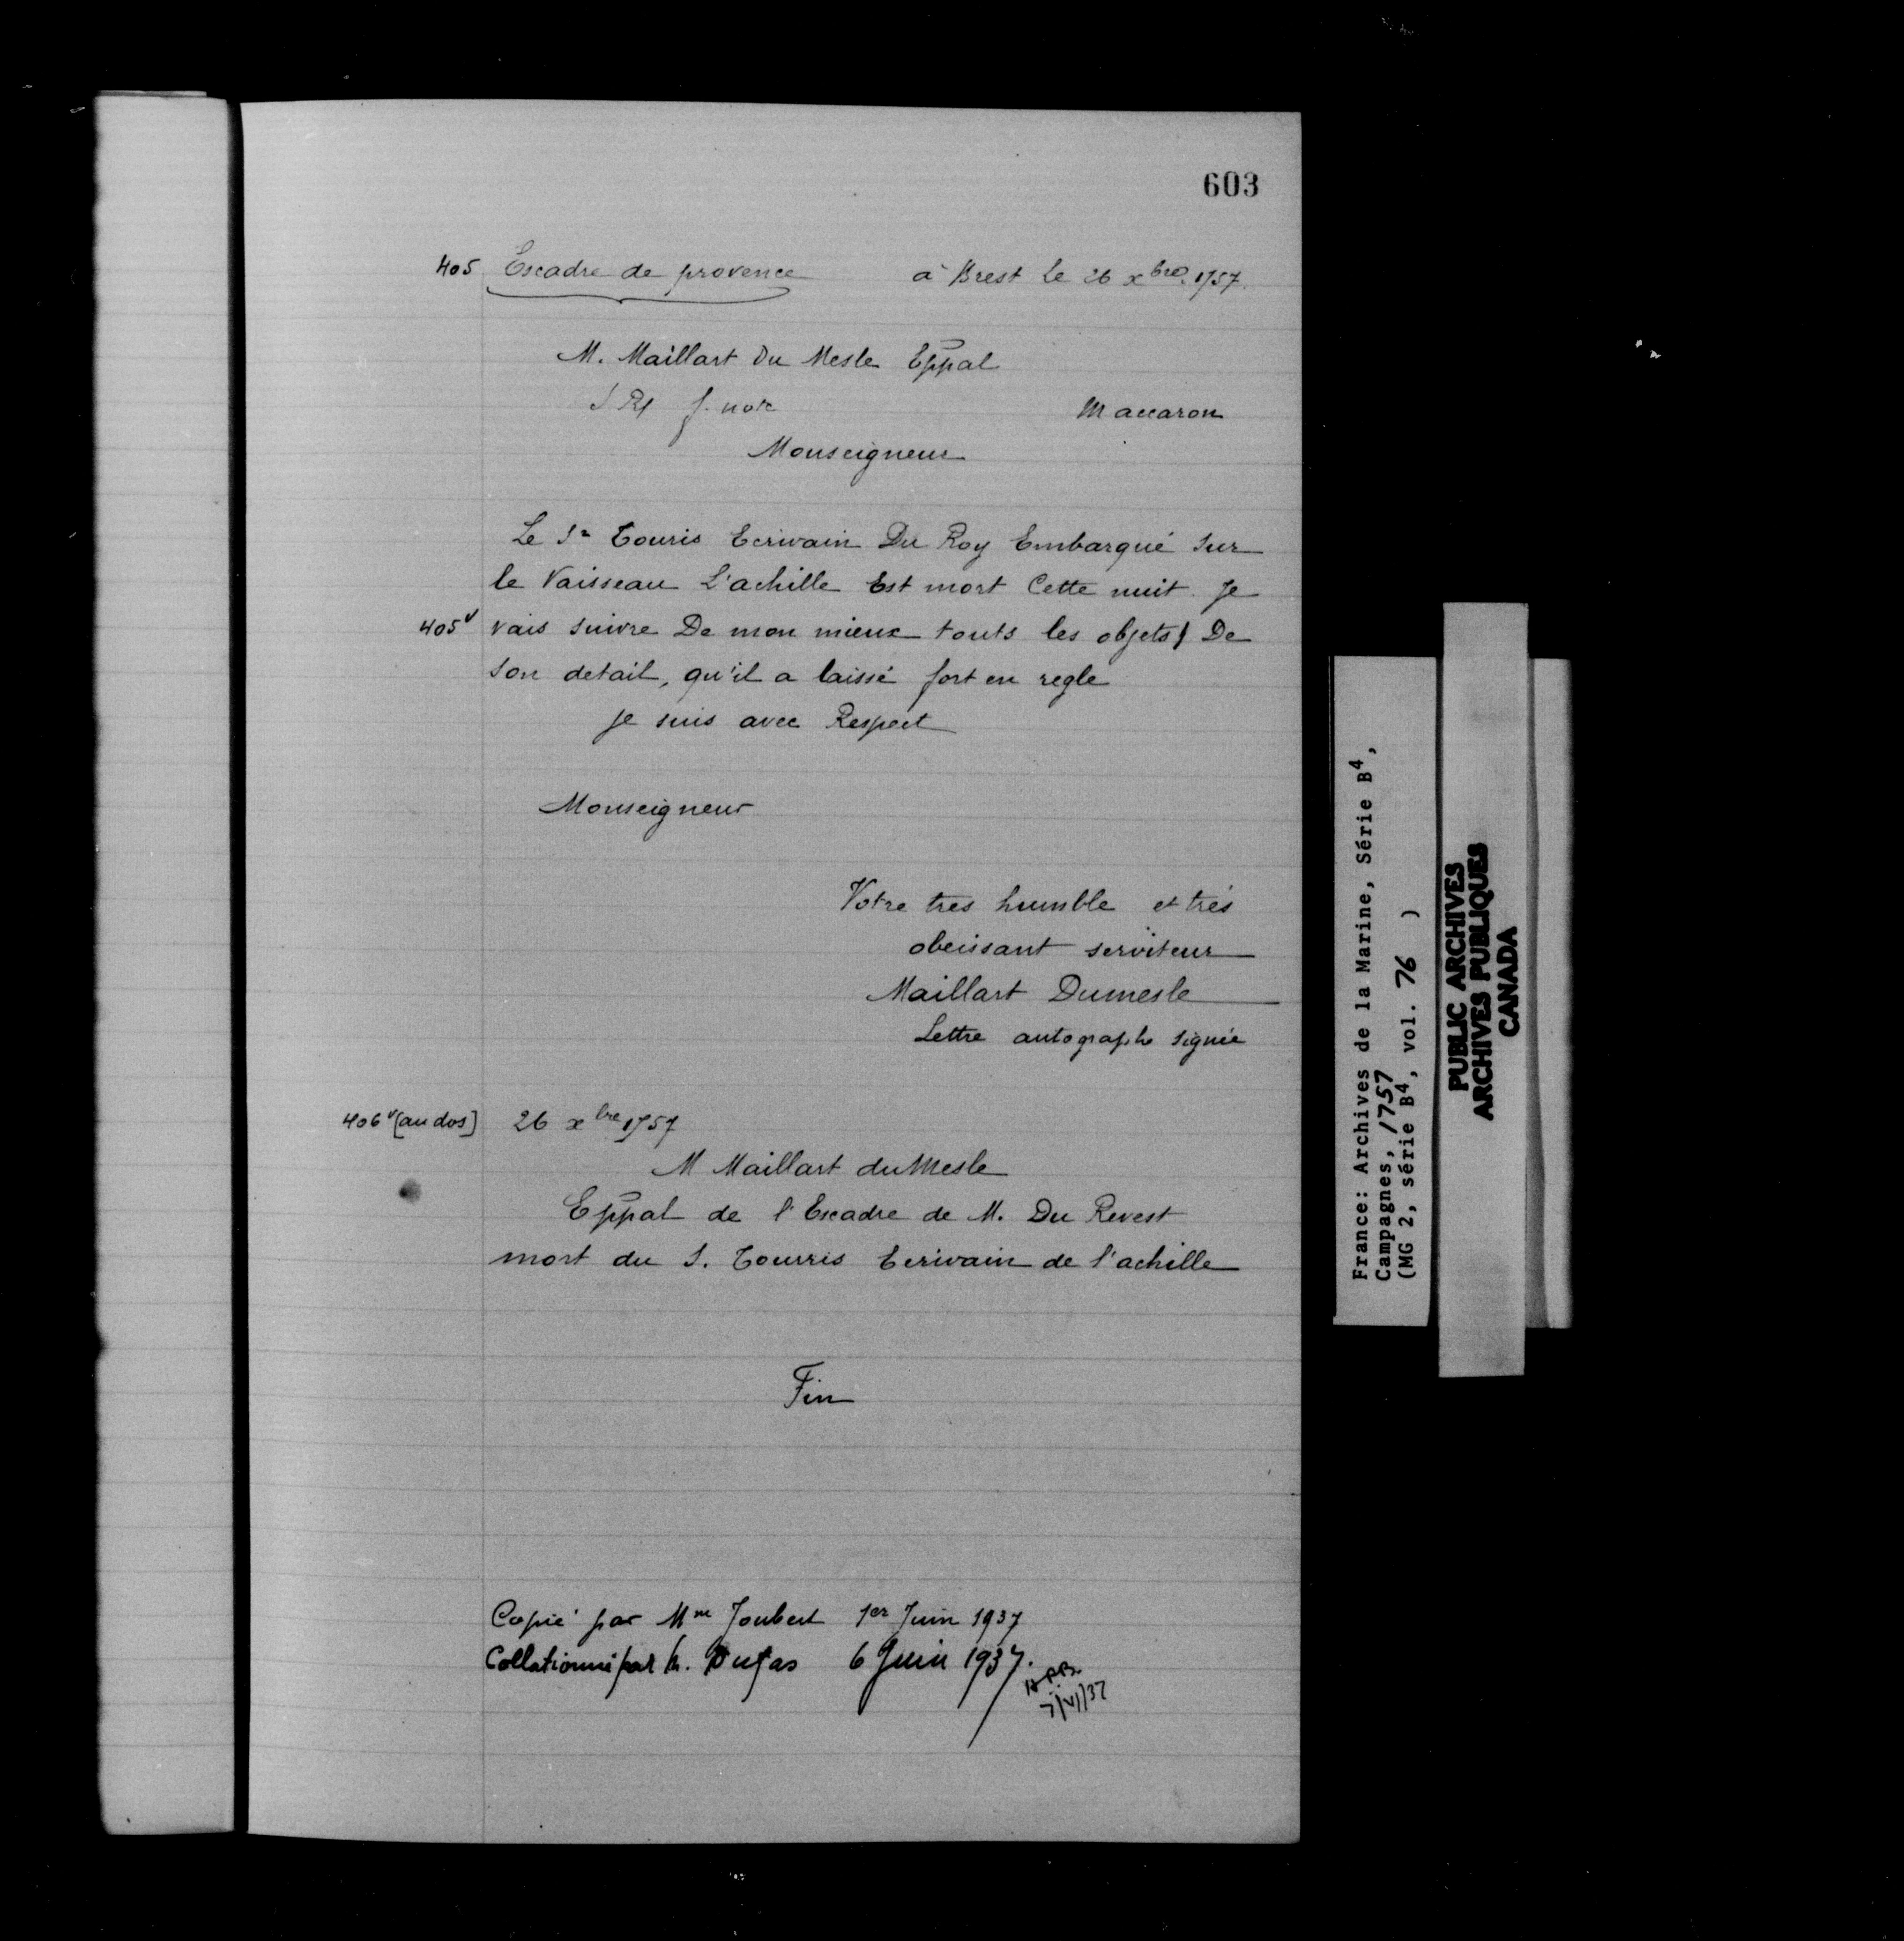 603
405 Escadre de provence à Brest Le 26 xbre 1757.
M. Maillart Du Mesle Eppal
Maccaron
Monseigneur
Le Sr Touris Ecrivain Du Roy Embarqué Sur
le Vaisseau L'achille Est mort Cette nuit. Je
405v vais suivre De mon mieux touts les objets/ De
Son detail, qu'il a laissé fort en regle
je suis avec Respect
Monseigneur
Votre tres humble et trés
obeissant serviteur
Maillart Dumesle
Lettre autographe signée
406v [au dos] 26 xbre 1757
M Maillart du Mesle
Eppal de l'Escadre de M. Du Revest
mort du S. Tourris Ecrivain de l'achille
Fin
Copié par Mme Joubert 1er Juin 1937
Collationné par M. Dufas 6 Juin 1937.
7/VI/37
France: Archives de la Marine, Série B4,
Campagnes, 1757
(MG 2, série B4, vol. 76 )
PUBLIC ARCHIVES
ARCHIVES PUBLIQUES
CANADA